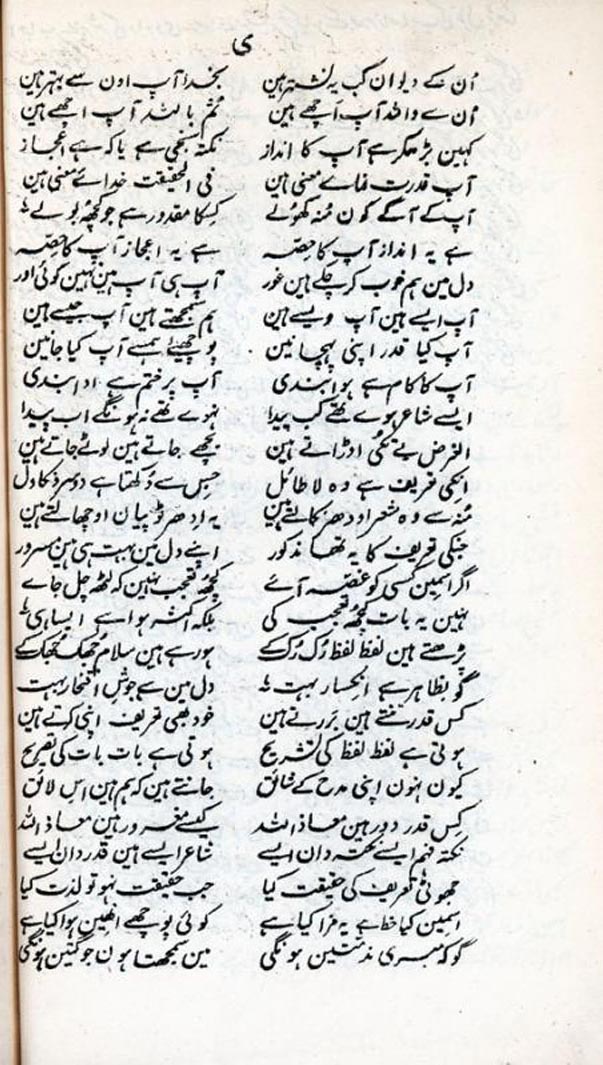 ی
اُن کے دیوان کب یہ نشتر ہین بخدا آپ اون سے بہتر ہین
اُن سے واللہ آپ اچھے ہین ثم باللہ آپ اچھے ہین
کہین بڑھکر ہے آپ کا انداز نکتہ سنجی ہے یا کہ ہے اعجاز
آپ قدرت نماے معنی ہین فی الحقیقت خداے معنی ہین
آپکے آگے کون مُنہ کھولے کِسکا مقدور ہے جو کچھ بولے
ہے یہ انداز آپ کا حصّہ ہے یہ اعجاز آپ کا حصّہ
دل مین ہم خوب کر چکے ہین غور آپ ہی آپ ہین نہین کوئی اور
آپ ایسے ہین آپ ویسے ہین ہم سمجھتے ہین آپ جیسے ہین
آپ کیا قدر اپنی پہچانین پوچھیے ہمسے آپ کیا جانین
آپ کا کام ہے ہوا بندی آپ پر ختم ہے ادا بندی
ایسے شاعر ہوے تھے کب پیدا نہوے تھے نہ ہونگے اب پیدا
الغرض بے تکی اوڑاتے ہین بچھے جاتے ہین لوٹے جاتے ہین
انکی تعریف ہے وہ لا طائل جس سے دُکھتا ہے دوسرونکا دل
مُنہ سے وہ شعر اودھر نکالتے ہین یہ ادھر ٹوپیان اوچھالتے ہین
جنکی تعریف کا یہ تھا مذکور اپنے دل مین بہت ہی ہین مسرور
اگر اسمین کسی کو غصّہ آئے کچھ تعجب نہین کہ لٹھ چل جاے
نہین یہ بات کچھ تعجب کی بلکہ اکثر ہوا ہے ایسا ہی
پڑھتے ہین لفظ لفظ رُک رُک کے ہو رہے ہین سلام جھک جھک کے
گو بظاہر ہے انکسار بہت دل مین ہے جوشِ افتخار بہت
کس قدر بنتے ہین بررتے ہین خود بھی تعریف اپنی کرتے ہین
ہوتی ہے لفظ لفظ کی تشریح ہوتی ہے بات بات کی تصریح
کیون نہون اپنی مدح کے شائق جانتے ہین کہ ہم ہین اس لائق
کِس قدر دور ہین معاذ اللہ کیسے مغرور ہین معاذ اللہ
نکتہ فہم ایسے نکتہ دان ایسے شاعر ایسے ہین قدردان ایسے
جھوٹی تعریف کی حقیقت کیا جب حقیقت نہو تو لذت کیا
اسمین کیا حظ ہے یہ مزا کیا ہے کوئی پوچھے انھین ہوا کیا ہے
گو کہ میری مذمتین ہونگی مین سمجھتا ہون جو گتین ہونگی